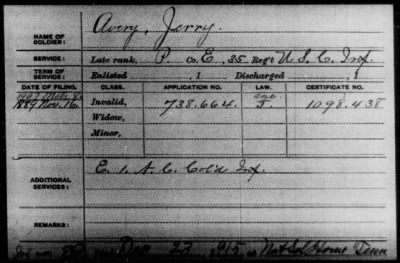 NAME OF SOLDIER: Avery, Jerry.
SERVICE: Late rank, P. Co. E, 35 Reg't U. S. C. Inf.
TERM OF SERVICE: Enlisted , 1 Discharged , 1
DATE OF FILING. CLASS. APPLICATION NO. LAW. CERTIFICATE NO.
1889 Nov. 16. Invalid, 738.664. J. 1098.438
Widow,
Minor,
ADDITIONAL SERVICES: E. 1. N. C. Col'd Inf.
REMARKS:
Dec 23, 1915, Nat Sol Home Tenn